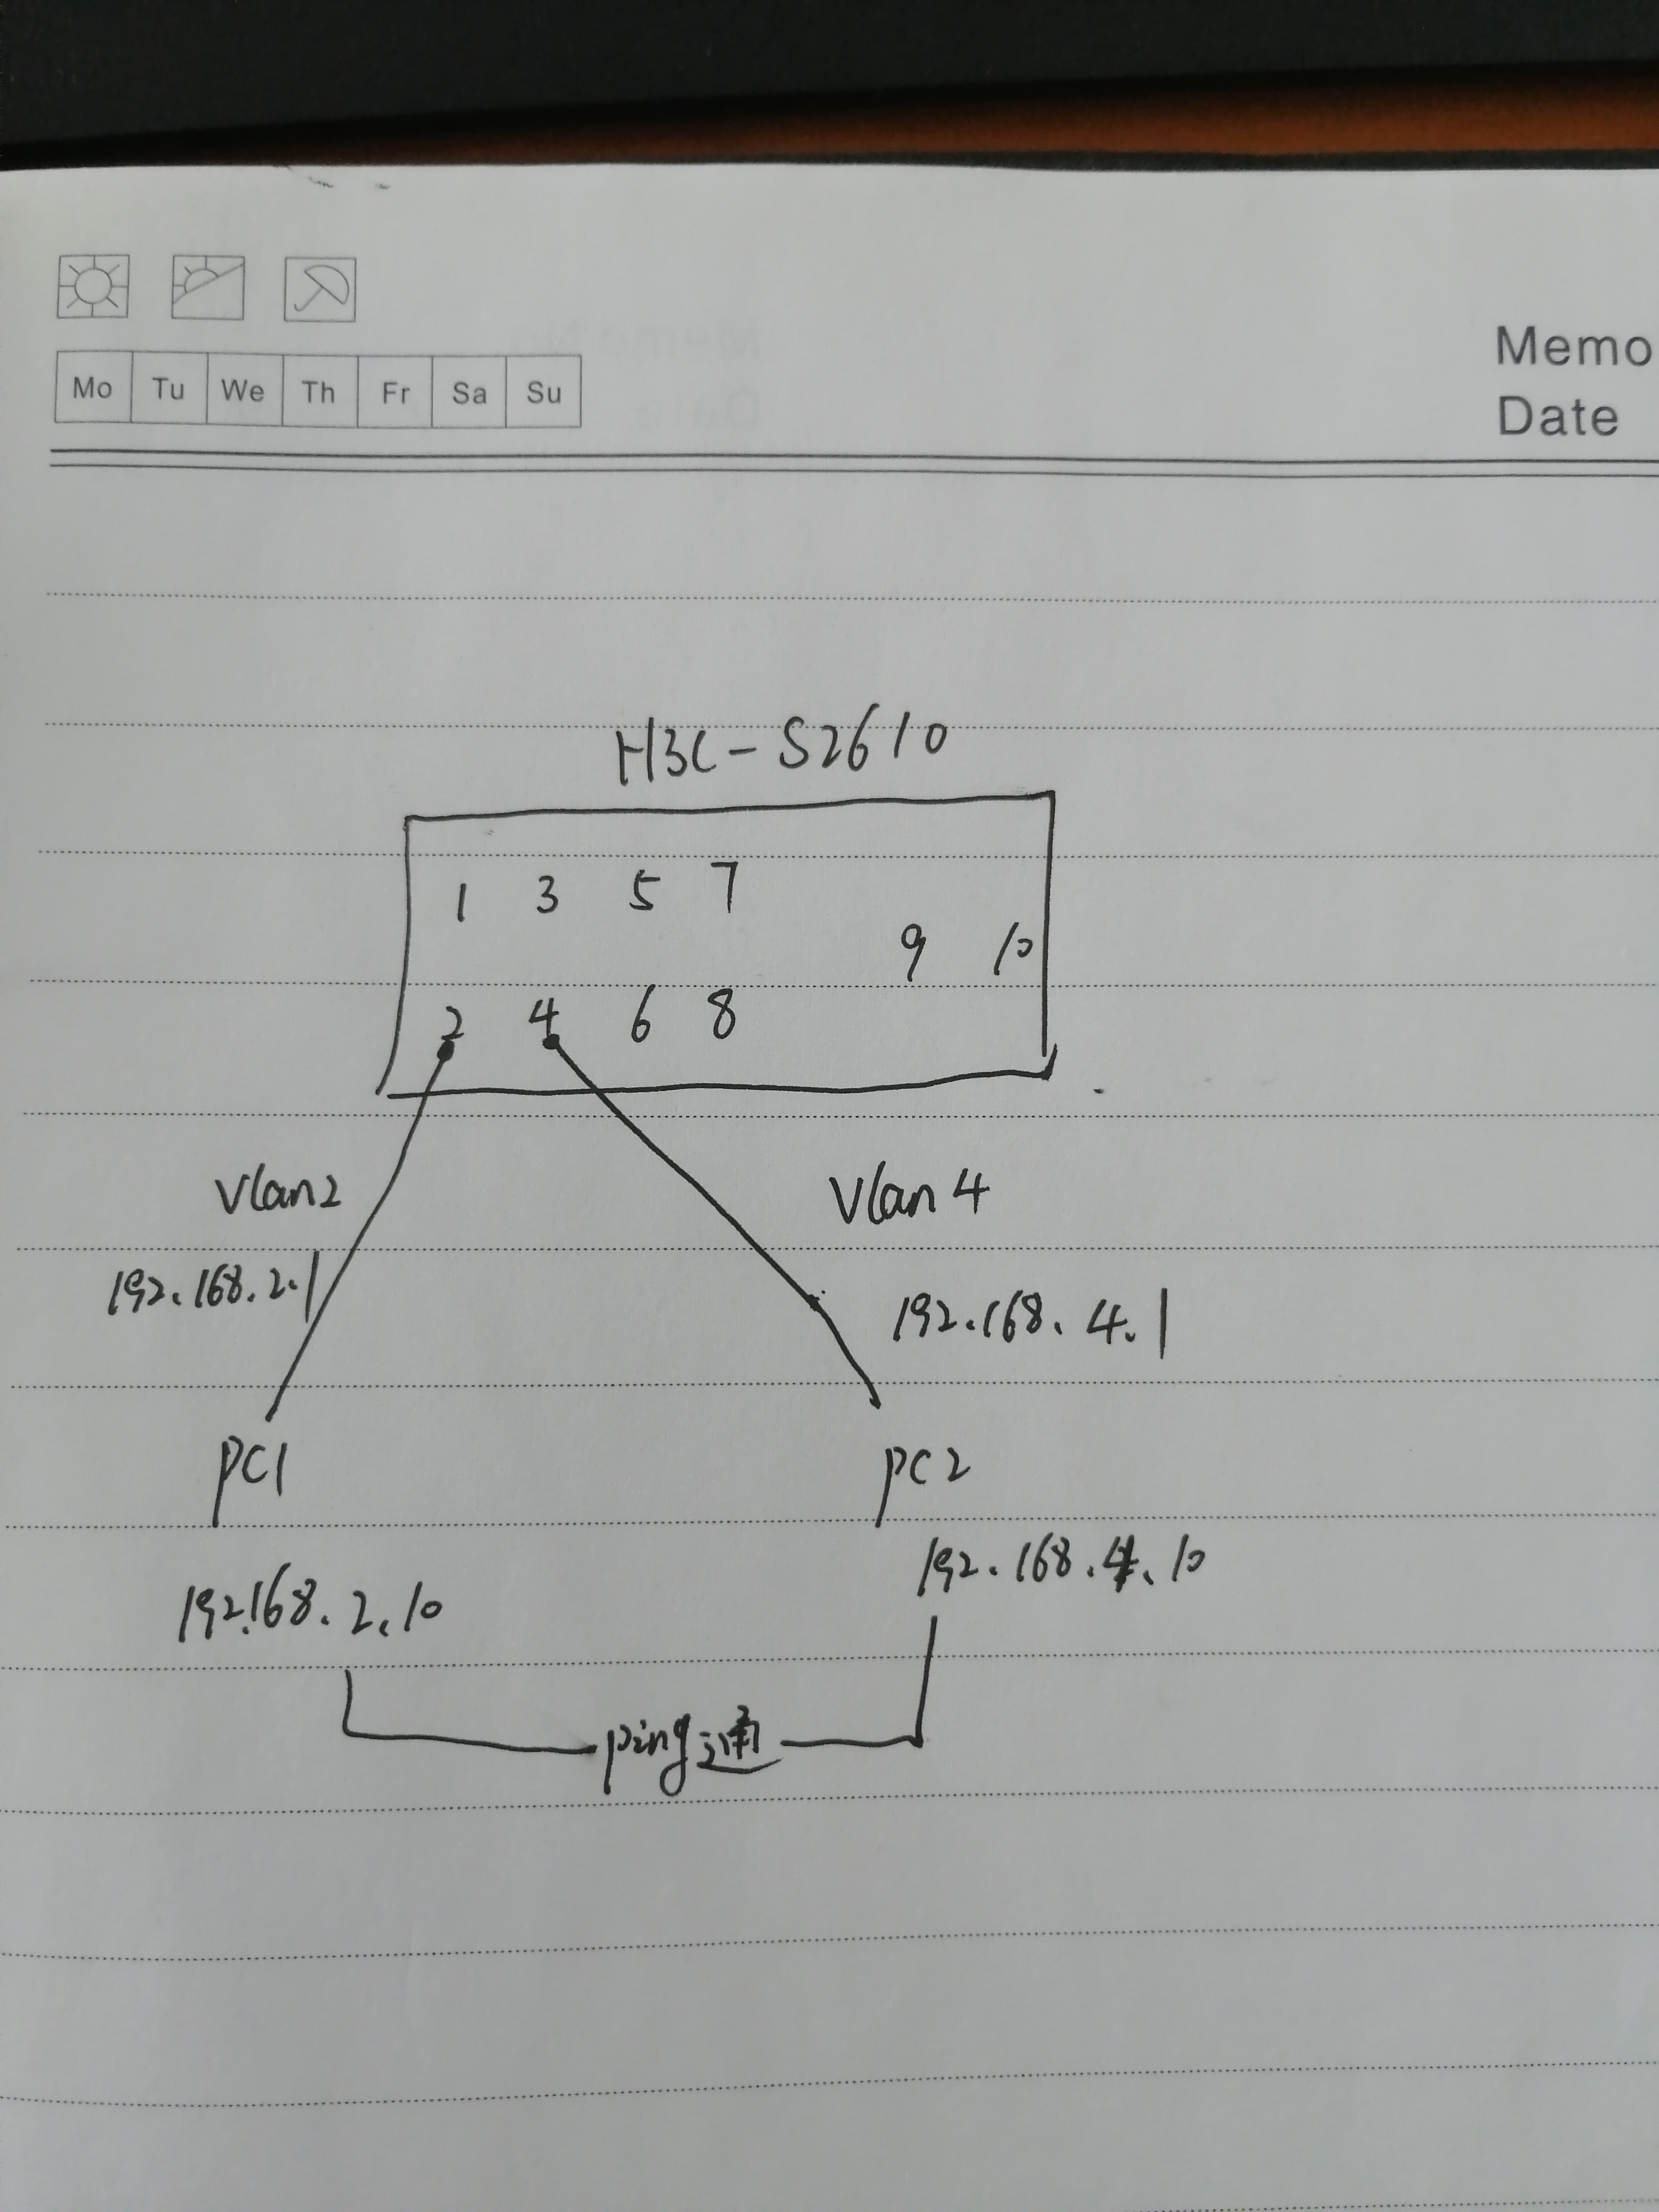 Memo
Date
Mo Tu We Th Fr Sa Su
H3C-S2610
1 3 5 7
9 10
2 4 6 8
Vlan2
Vlan4
192.168.2.1
192.168.4.1
PC1
PC2
192.168.2.10
192.168.4.10
ping通